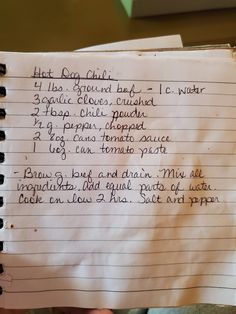 Hot Dog Chili
4 lbs. ground beef - 1 c. water
3 garlic cloves, crushed
2 tbsp. chili powder
½ g. pepper, chopped
2 8oz. cans tomato sauce
1 6oz. can tomato paste
- Brown g. beef and drain. Mix all
ingredients. Add equal parts of water.
Cook on low 2 hrs. Salt and pepper